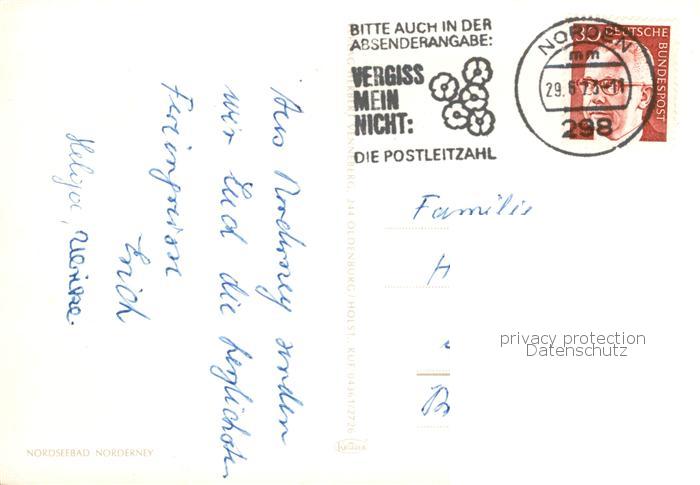 BITTE AUCH IN DER
ABSENDERANGABE:
VERGISS
MEIN
NICHT:
DIE POSTLEITZAHL
NORDEN
mm
29.6.73-11
298
30 DEUTSCHE
BUNDESPOST
Aus Norderney senden
wir Euch die herzlichsten
Feriengrüsse
Erich
Helga, Ulrike.
Familie
H
privacy protection
Datenschutz
244 OLDENBURG/HOLST. RUF 04361/2726
KRÜGER
NORDSEEBAD NORDERNEY